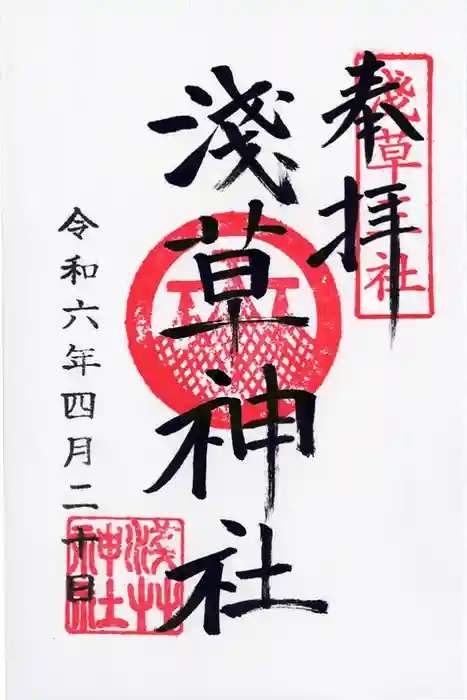 奉拝
浅草三社
淺草神社
令和六年四月二十日
浅艸
神社